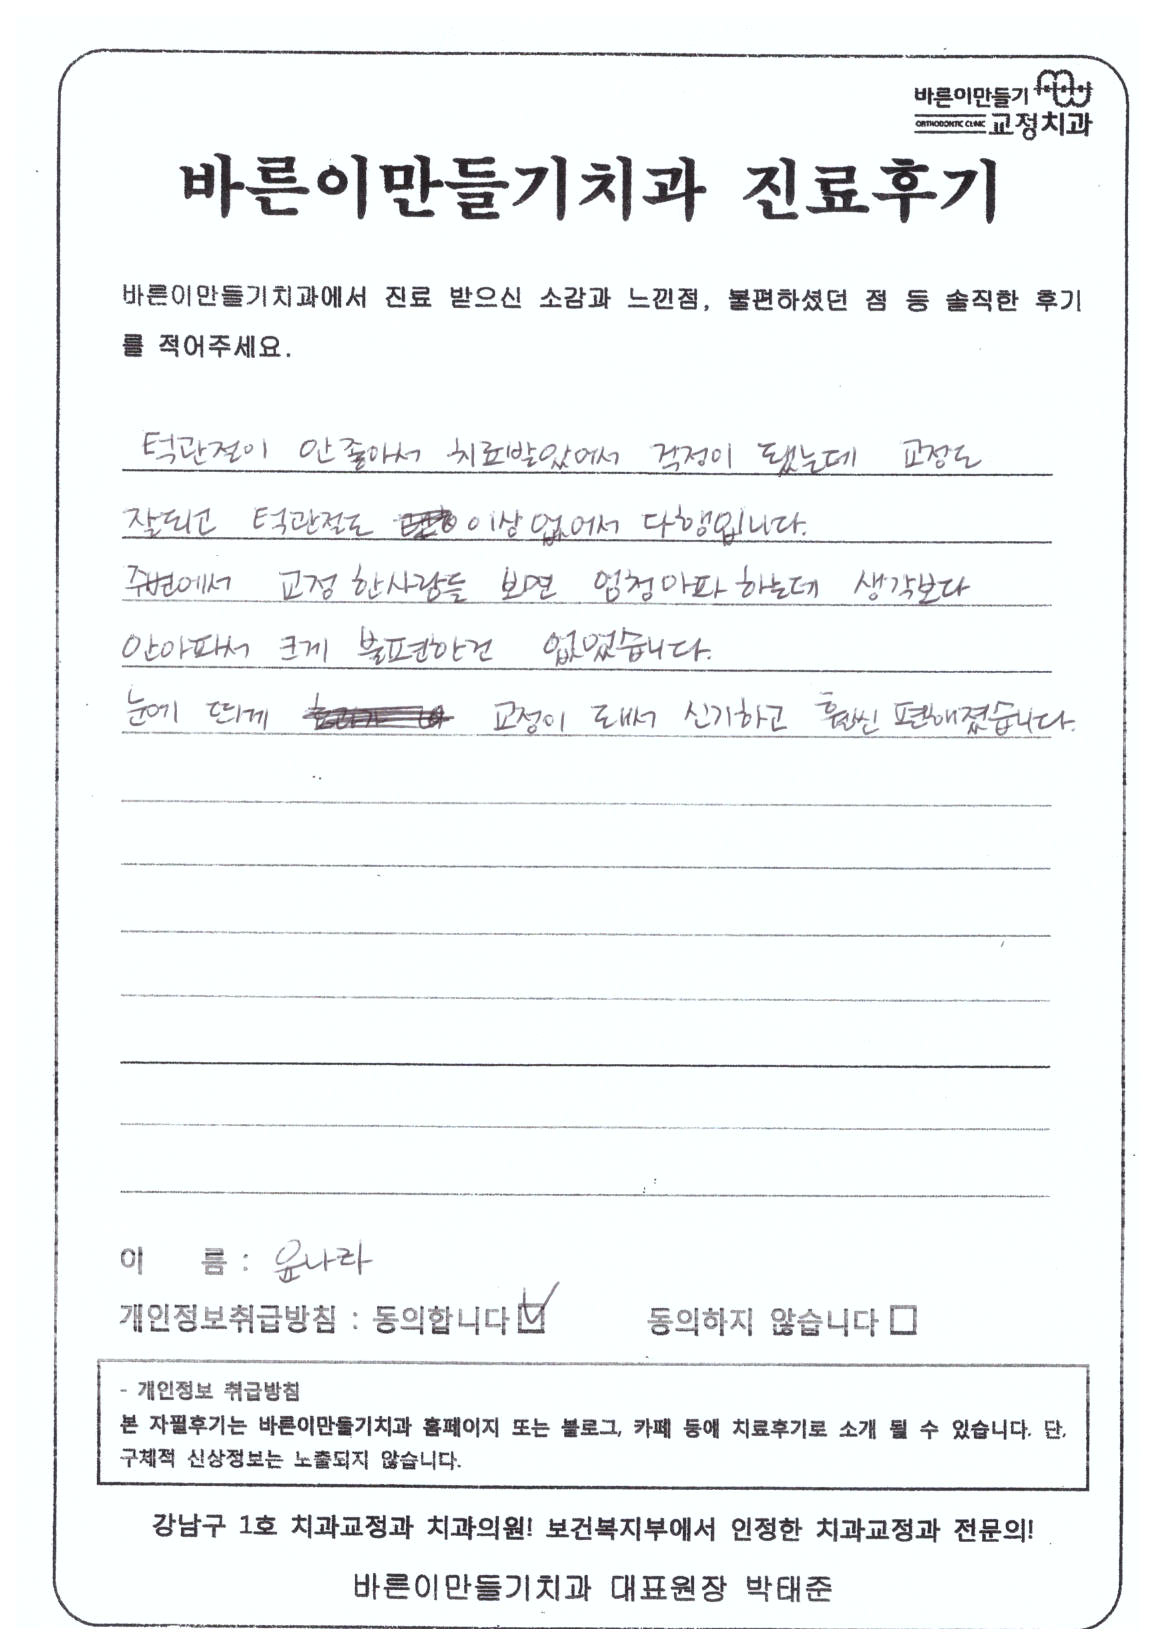 바른이만들기
ORTHODONTIC CLINIC 교정치과
바른이만들기치과 진료후기
바른이만들기치과에서 진료 받으신 소감과 느낀점, 불편하셨던 점 등 솔직한 후기
를 적어주세요.
턱관절이 안좋아서 치료받았어서 걱정이 됐는데 교정도
잘되고 턱관절도 이상 없어서 다행입니다.
주변에서 교정 한사람들 보면 엄청아파 하는데 생각보다
안아파서 크게 불편한건 없었습니다.
눈에 띄게 교정이 돼서 신기하고 훨씬 편해졌습니다.
이 름 : 윤나라
개인정보취급방침 : 동의합니다 동의하지 않습니다
- 개인정보 취급방침
본 자필후기는 바른이만들기치과 홈페이지 또는 블로그, 카페 등에 치료후기로 소개 될 수 있습니다. 단,
구체적 신상정보는 노출되지 않습니다.
강남구 1호 치과교정과 치과의원! 보건복지부에서 인정한 치과교정과 전문의!
바른이만들기치과 대표원장 박태준